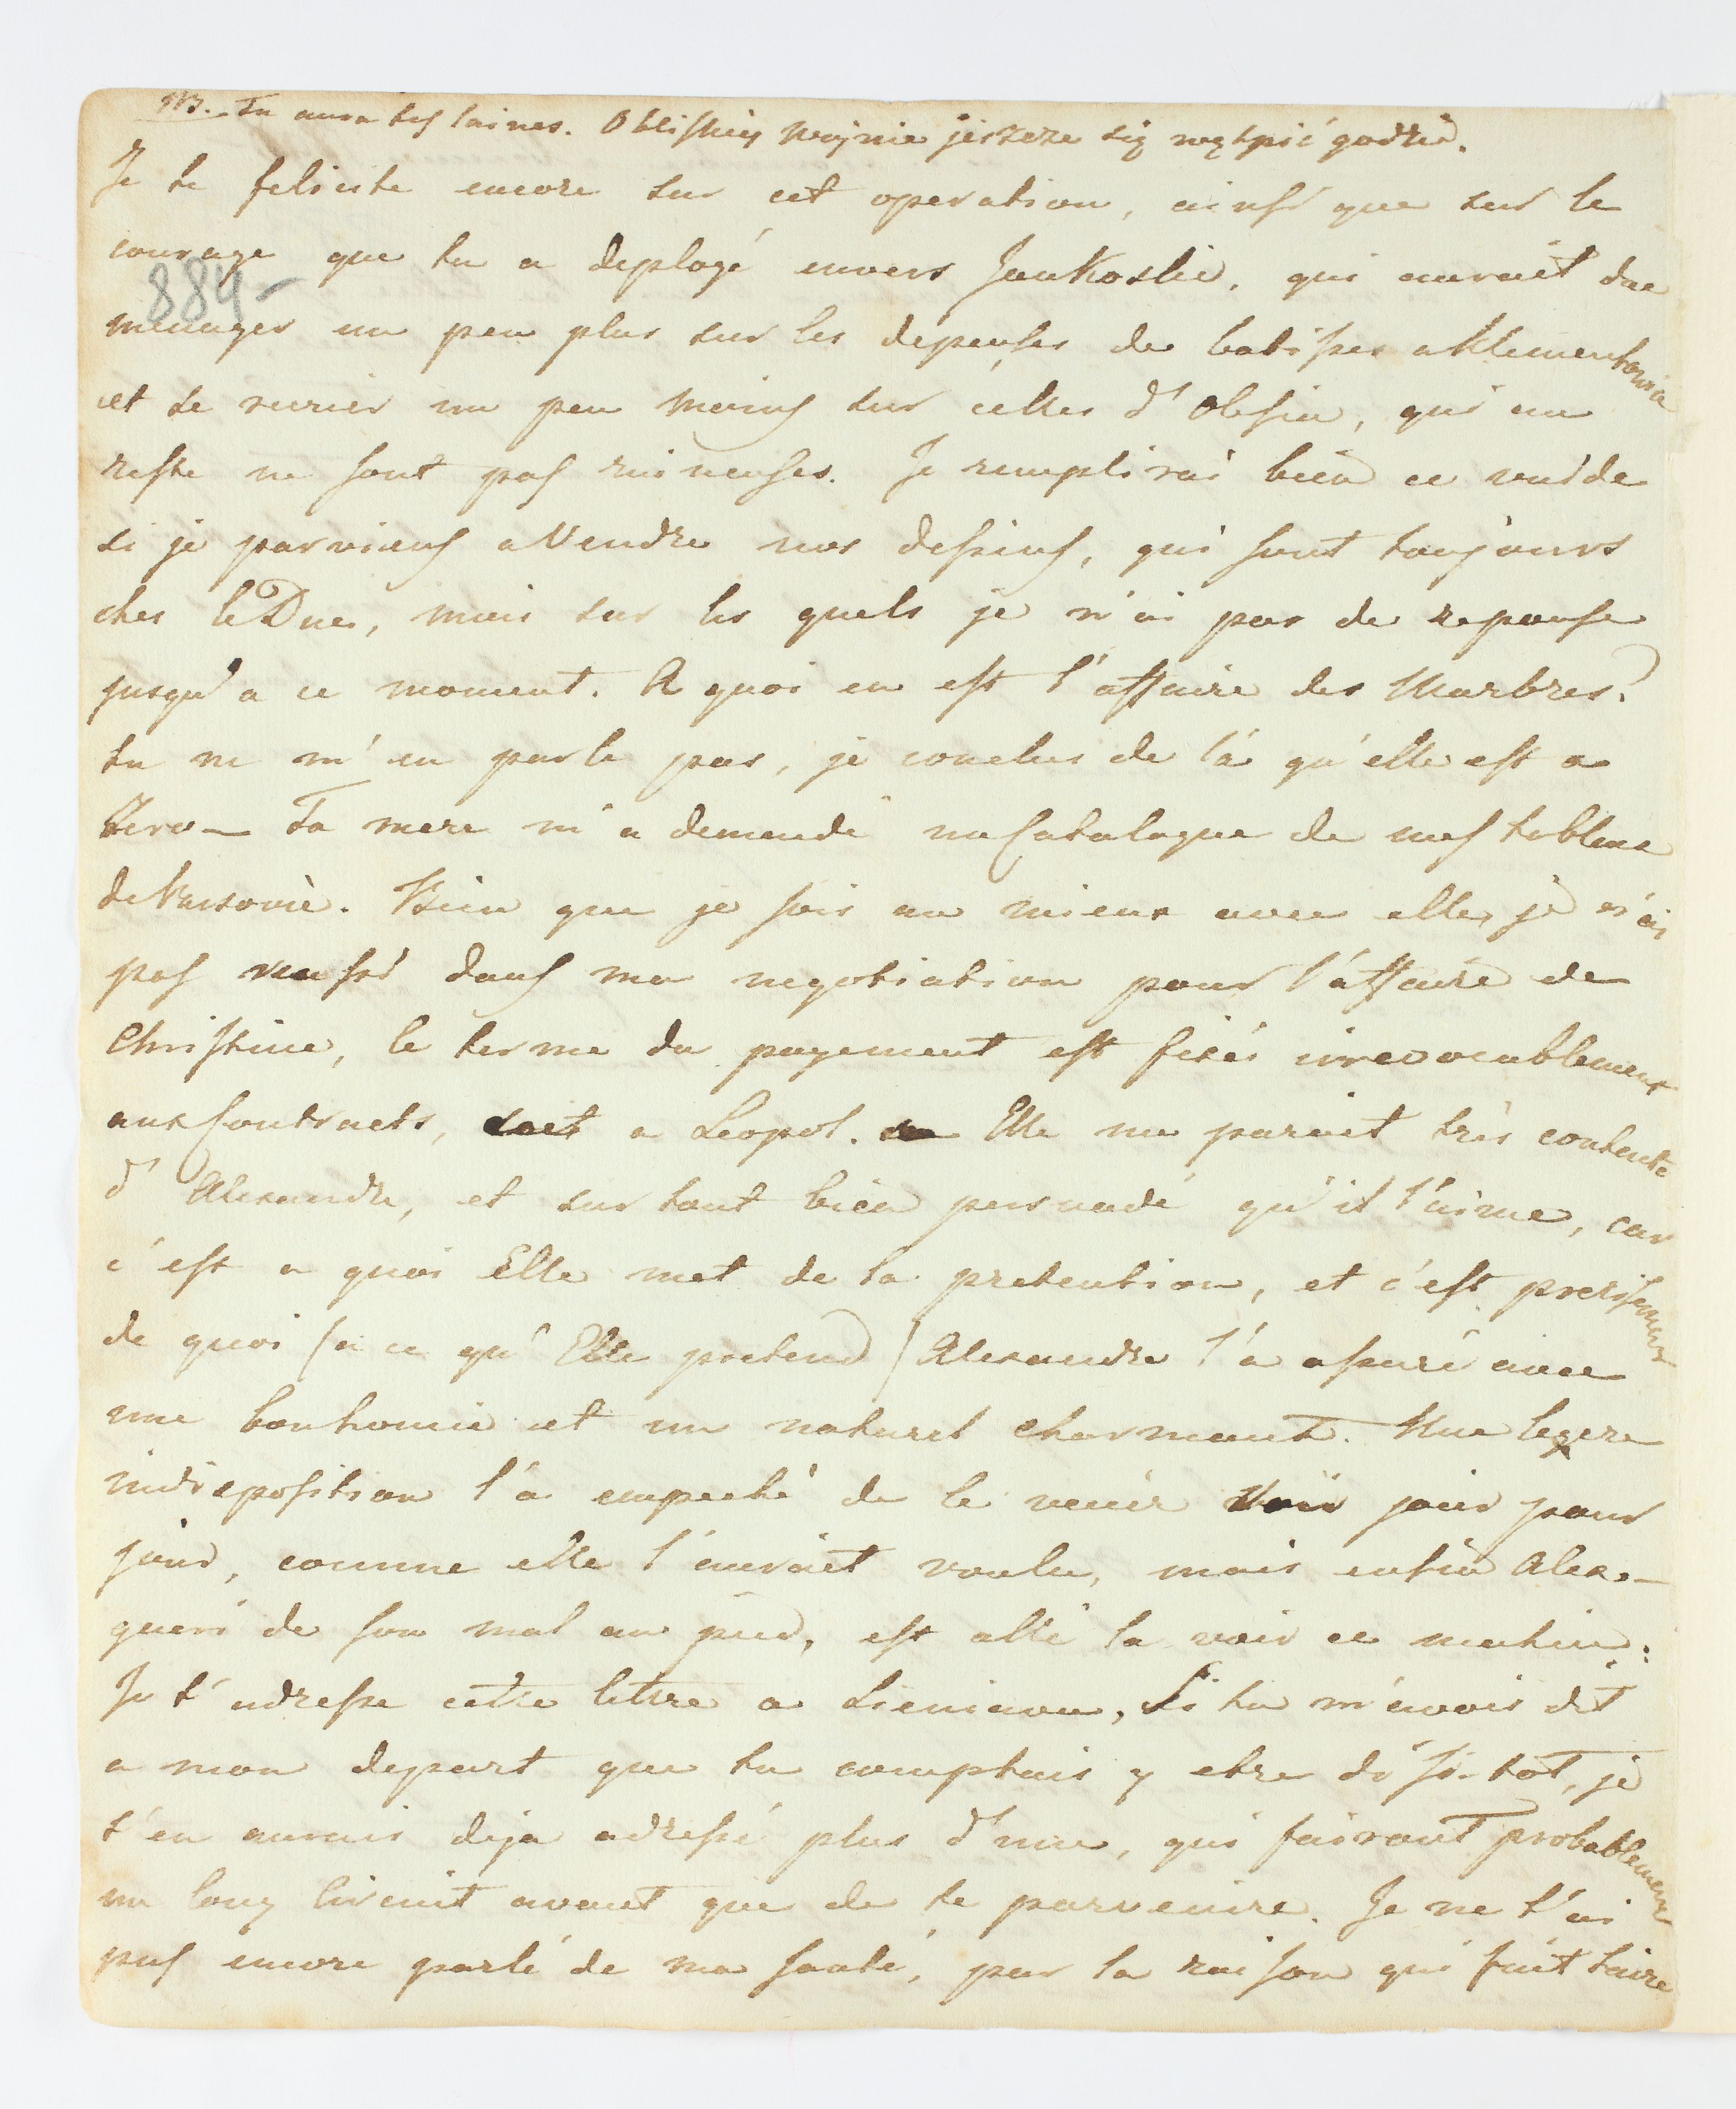 NB. Tu aura tes laines. O bliskiey woynie jeszcze się wątpić godzi.
Je te felicite encore sur cet operation, ainsi que sur le
courage que tu a deployé envers Jankoskie, qui auroit due
884-
menager un peu plus sur les depenses de batisses a Klementowia
et se recrier un peu moins sur celles d'Olesin, qui au
reste ne sont pas ruineuses. Je remplirai bien ce vuide
si je parviens a vendre nos dessins, qui sont toujours
ches le Duc, mais sur les quels je n'ai pas de reponse
jusqu'a ce moment. A quoi en est l'affaire des Marbres?
tu ne m'en parle pas, je conclus de là qu'elle est a
Zero — Ta mere m'a demandé un Catalogue de mes tableaux
de Varsovie. Bien que je sois au mieux avec elle, je n'ai
pas reussi dans ma negotiation pour l'affaire de
Christine, le terme du payement est fixé irrevocablement
aux Contracts, soit a Leopol. Elle me paroit très contente
d'Alexandre, et sur tout bien persuadé qu'il l'aime, car
c'est a quoi Elle met de la pretention, et c'est precisement
de quoi (a ce qu'Elle pretend) Alexandre l'a assuré avec
une bonhomie et un naturel charmant. Une legere
indisposition l'a empeché de le venir voir jour pour
jour, comme elle l'auroit voulu, mais enfin Alex.
gueri de son mal au pied, est allé la voir ce matin:
Je t'adresse cette lettre a Sieniawa, Si tu m'avois dit
a mon depart que tu comptais y etre di si-tot, je
t'en aurais deja adressé plus d'une, qui fairont probablement
un long circuit avant que de te parvenire. Je ne t'ai
pas encore parlé de ma santé, par la raison qui fait taire